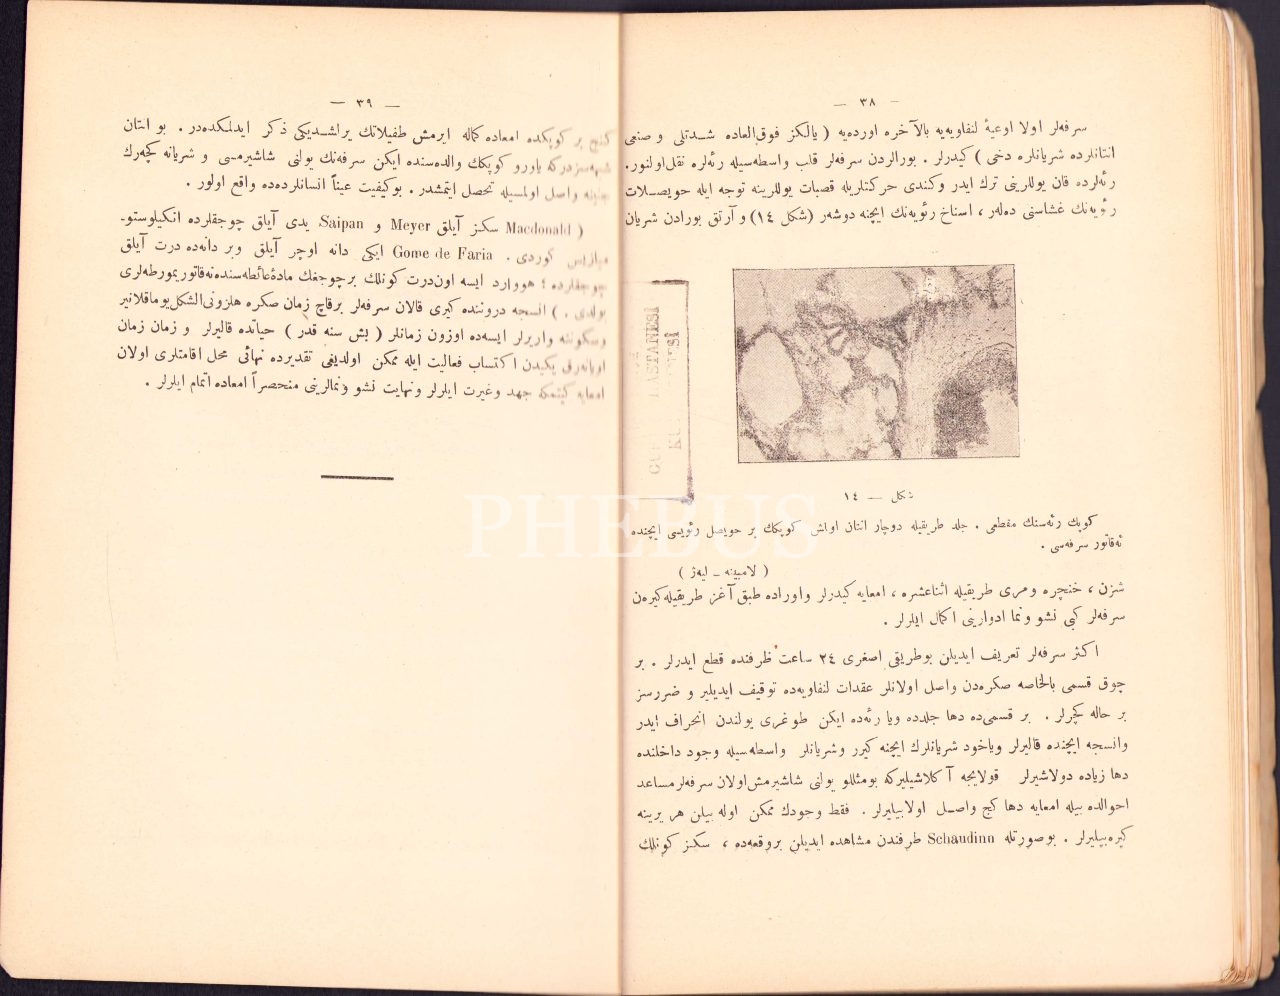 — ٣٨ —
سرفه‌لر اولا اوعیهٔ لنفاویه‌یه بالآخره اورده‌یه ( یالکز فوق‌العاده شدتلی و صنعی
انتانلرده شریانلره دخی ) کیدرلر . بورالردن سرفه‌لر قلب واسطه‌سیله رئه‌لره نقل‌اولنور.
رئه‌لرده قان یوللرینی ترك ایدر وکندی حرکتلریله قصبات یوللرینه توجه ایله حویصلات
رؤیه‌نك غشاسنی ده‌لەر ، اسناخ رئویه‌نك ایچنه دوشەر (شکل ١٤) و آرتق بورادن شریان
شکل — ١٤
کوپك رئه‌سنك مقطعی . جلد طریقیله دوچار انتان اولمش کوپکك بر حویصل رئویسی ایچنده
نه‌قاتور سرفه‌سی .
( لامبینه - لیه‌ژ )
شزن ، خنجره ومری طریقیله اثناعشره ، امعایه کیدرلر واوراده طبق آغز طریقیله‌کیره‌ن
سرفه‌لر کبی نشو ونما ادوارینی اکمال ایلرلر .
اکثر سرفه‌لر تعریف ایدیلن بوطریقی اصغری ٢٤ ساعت ظرفنده قطع ایدرلر . بر
چوق قسمی بالخاصه صکره‌دن واصل اولانلر عقدات لنفاویه‌ده توقیف ایدیلیر و ضررسز
بر حاله کچرلر . بر قسمی‌ده دها جلدده ویا رئه‌ده ایکن طوغری یولندن انحراف ایدر
وانسجه ایچنده قالیرلر ویاخود شریانلرك ایچنه کیرر وشریانلر واسطه‌سیله وجود داخلنده
دها زیاده دولاشیرلر قولایجه آکلاشیلیرکه بومثللو یولنی شاشیرمش‌اولان سرفه‌لرمساعد
احوالده بیله امعایه دها کج واصل اولابیلیرلر . فقط وجودك ممکن اوله بیلن هر یرینه
کیره‌بیلیرلر . بوصورتله Schaudinn طرفندن مشاهده ایدیلن بروقعه‌ده ، سکز کونلك
— ٣٩ —
کنج بر کوپکده امعاده کماله ایرمش طفیلاتك یراشدیکی ذکر ایدلمکده‌در . بو انتان
شبهه‌سزدرکه یاورو کوپکك والده‌سنده ایکن سرفه‌نك یولنی شاشیرمسی و شریانه کچه‌رك
جنینه واصل اولمسیله تحصل ایتمشدر . بوکیفیت عیناً انسانلرده‌ده واقع اولور .
( Macdonald سکز آیلق Meyer و Saipan یدی آیلق چوجقلرده انکیلوستو-
میازیس کوردی . Gome de Faria ایکی دانه اوچر آیلق وبر دانه‌ده درت آیلق
چوجقلرده ؛ هووارد ایسه اون‌درت کونلك برچوجغك مادهٔ غائطه‌سنده‌نه‌قاتوریمورطه‌لری
بولدی . ) انسجه دروننده کیری قالان سرفه‌لر برقاچ زمان صکره هلزونی‌الشکل‌یوماقلانیر
وسکونته واریرلر ایسه‌ده اوزون زمانلر ( بش سنه قدر ) حیاتده قالیرلر و زمان زمان
اویانه‌رق یکیدن اکتساب فعالیت ایله ممکن اولدیغی تقدیرده نهائی محل اقامتلری اولان
امعایه کیتمکه جهد وغیرت ایلرلر ونهایت نشو ونمالرینی منحصراً امعاده اتمام ایلرلر .
PHEBUS